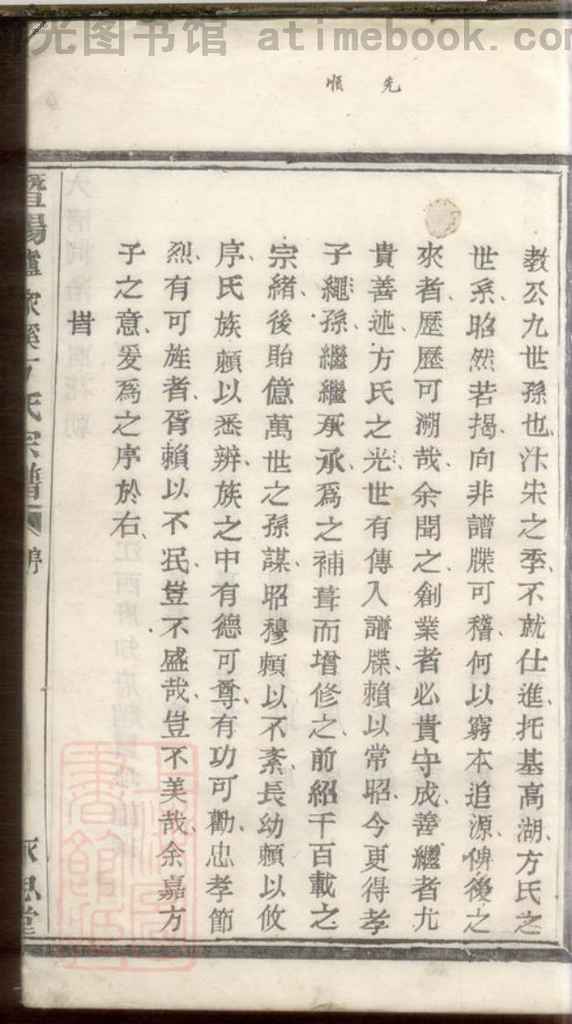 光图书馆 atimebook.com
先順
教公九世孫也、汴宋之季、不就仕進、托基高湖、方氏之
世系、昭然若揭、向非譜牒可稽、何以窮本追源、俾後之
來者、歷歷可溯哉、余聞之、創業者必貴守成、善繼者尤
貴善述、方氏之光世有傳人、譜牒賴以常昭、今更得孝
子繩孫、繼繼承承、爲之補葺而增修之、前紹千百載之
宗緒、後貽億萬世之孫謀、昭穆賴以不紊、長幼賴以攸
序、氏族賴以悉辨、族之中有德可尊、有功可勸、忠孝節
烈、有可旌者、胥賴以不泯、豈不盛哉、豈不美哉、余嘉方
子之意、爰爲之序於右、
旹
暨陽 方氏宗譜 序 永思堂